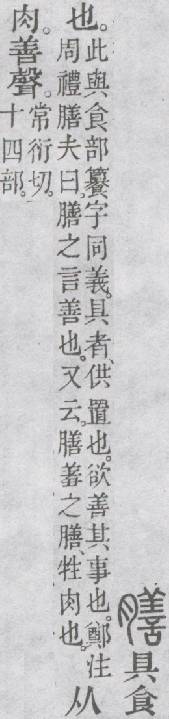 膳具食
也。
此與食部籑字同義。具者、供置也。欲善其事也。鄭注
周禮膳夫曰。膳之言善也。又云。膳羞之膳、牲肉也。
从
肉。善聲。
常衍切。
十四部。